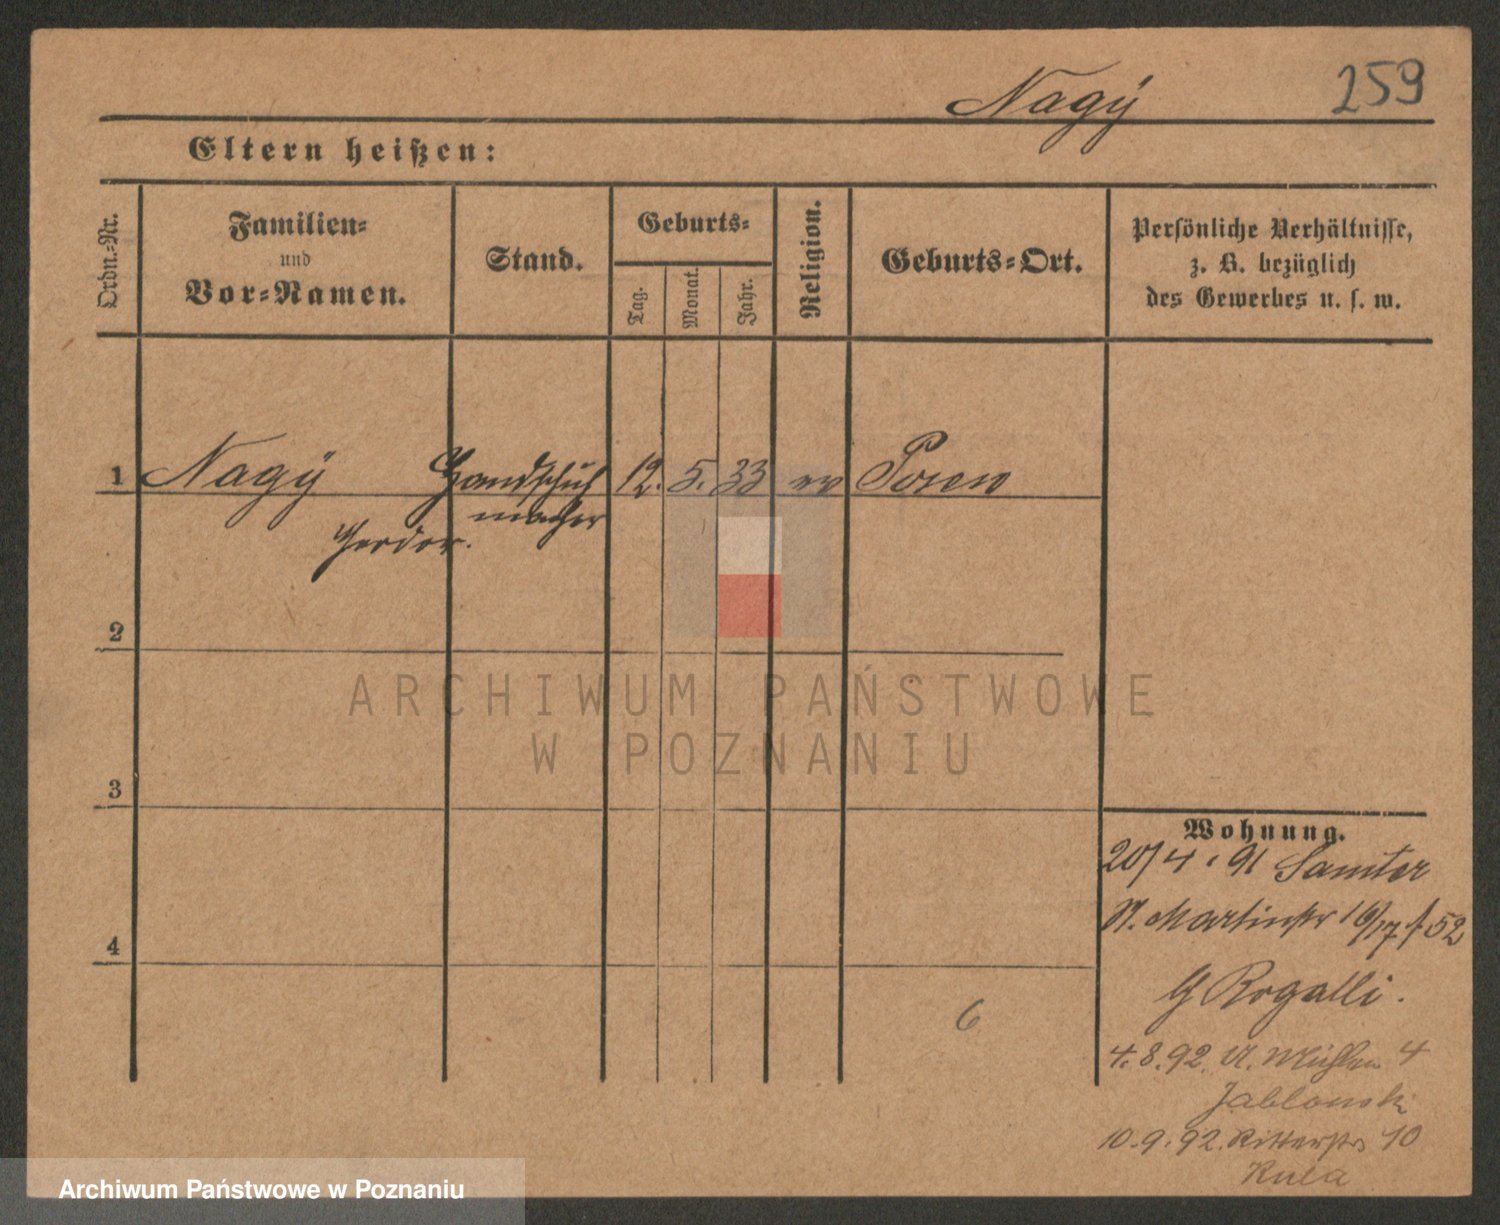 Nagÿ 259
Eltern heißen:
Ordn.-Nr.
Familien-
und
Vor-Namen.
Stand.
Geburts-
Tag.
Monat.
Jahr.
Religion.
Geburts-Ort.
Persönliche Verhältnisse,
z. B. bezüglich
des Gewerbes u. s. w.
1 Nagÿ Handschuh 12. 5. 33 ev Posen
macher
2
ARCHIWUM PAŃSTWOWE
W POZNANIU
3
Wohnung.
20/4. 91 Samter
St. Martinstr 16/17 52
4
G Rogalli.
6
4.8.92. Mühlen 4
Jablonski
10.9.92. Ritterstr 10
Kula
Archiwum Państwowe w Poznaniu